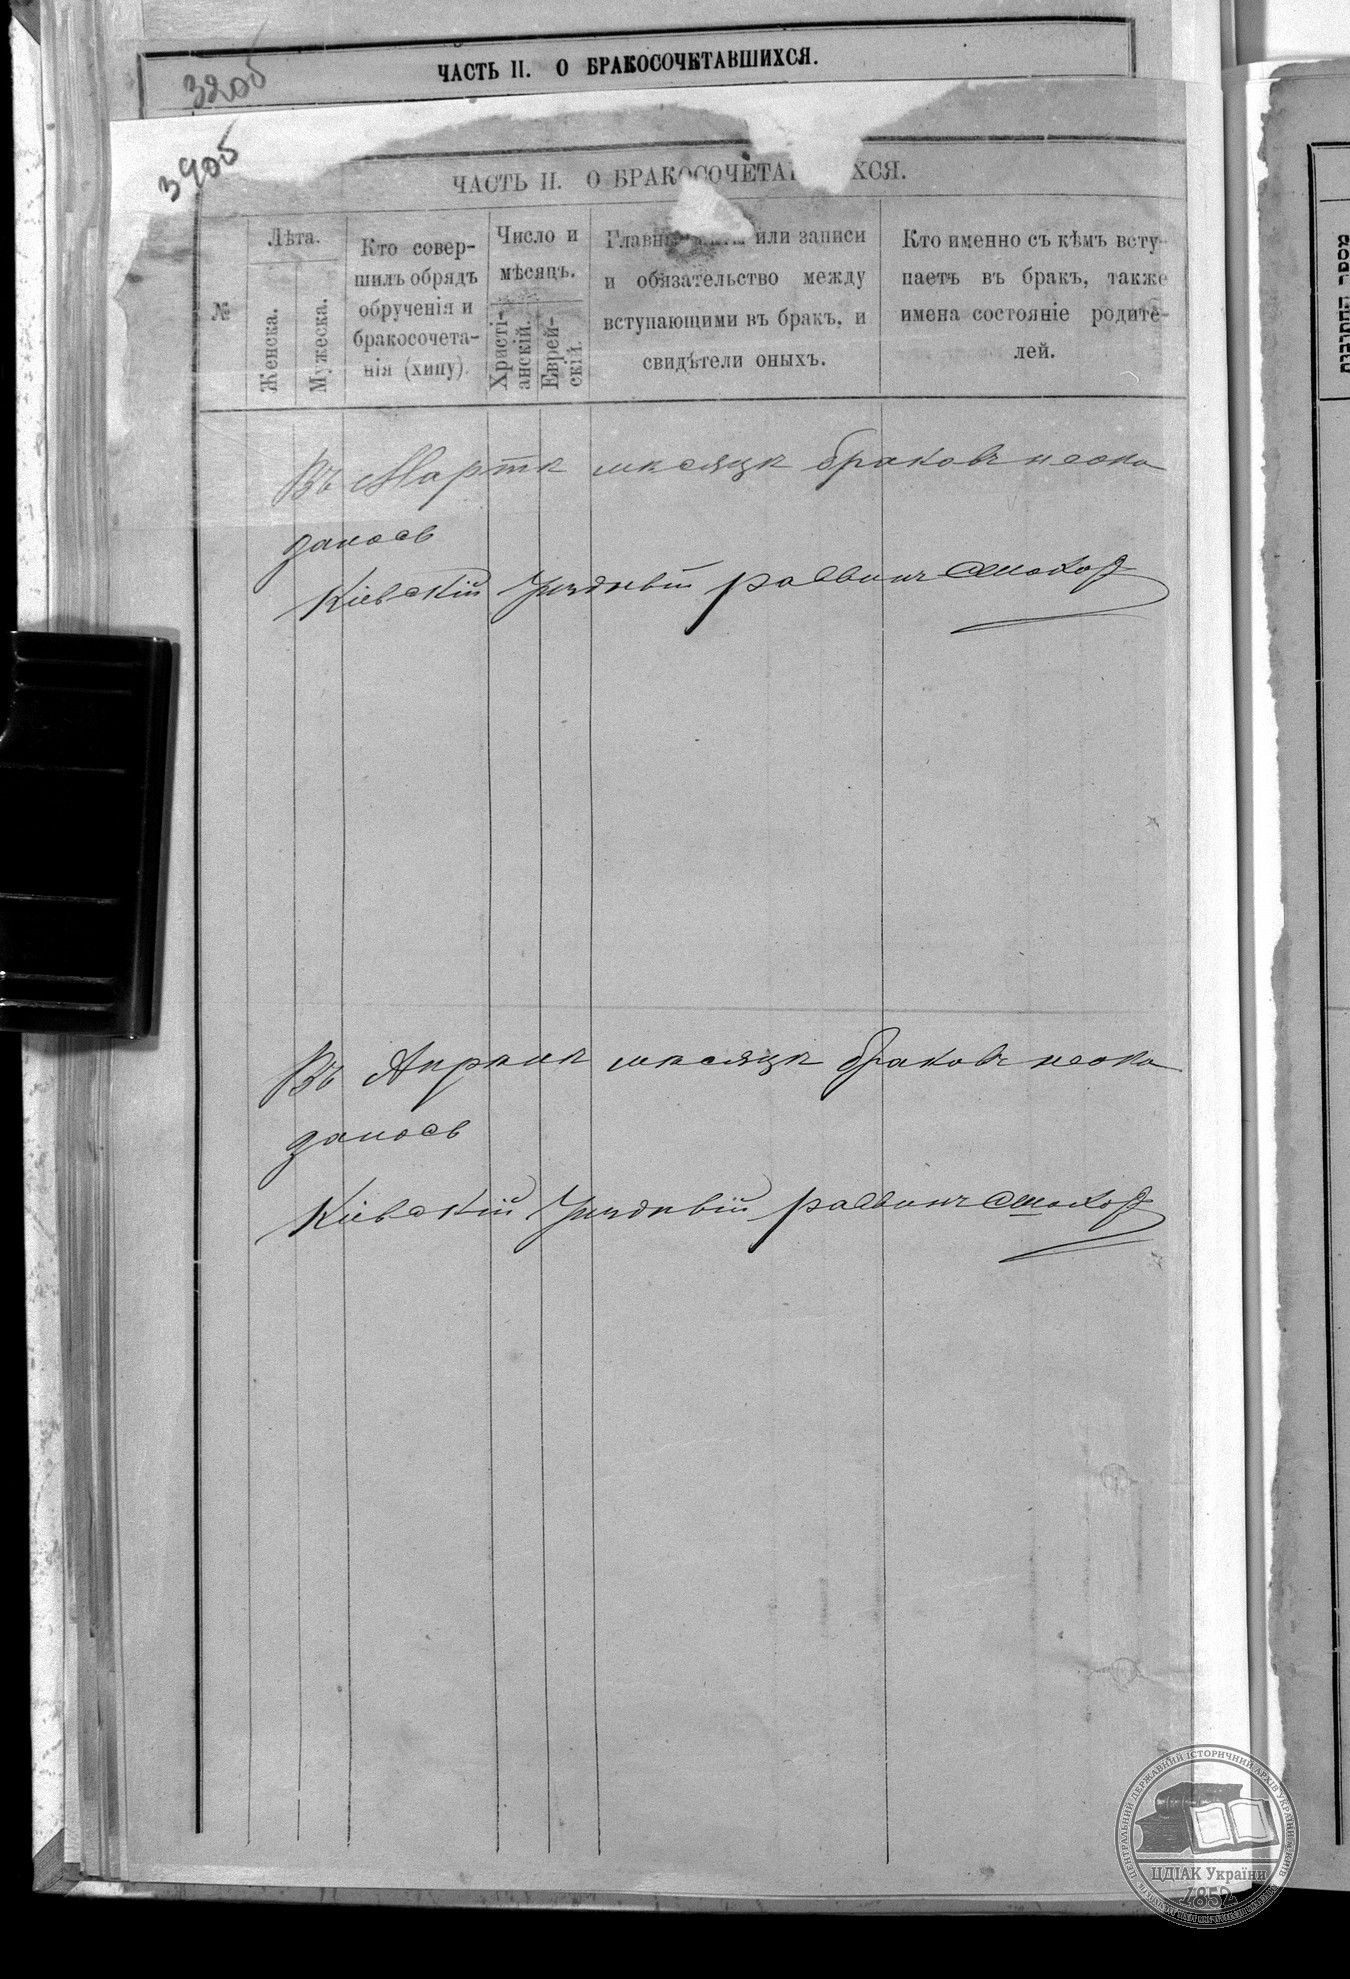 32об
ЧАСТЬ II. О БРАКОСОЧЕТАВШИХСЯ.
39об
ЧАСТЬ II. О БРАКОСОЧЕТА ХСЯ.
№
Лѣта.
Женска.
Мужеска.
Кто совер-
шилъ обрядъ
обрученія и
бракосочета-
нія (хипу).
Число и
мѣсяцъ.
Христі-
анскій.
Еврей-
скій.
Главн или записи
и обязательство между
вступающими въ бракъ, и
свидѣтели оныхъ.
Кто именно съ кѣмъ всту-
паетъ въ бракъ, также
имена состояніе родите-
лей.
Въ Мартѣ мѣсяцѣ браковъ неока
залось
Кіевскій Уѣздный раввинъ
Въ Апрѣлѣ мѣсяцѣ браковъ неока
залось
Кіевскій Уѣздный раввинъ
מספר הנקבות
ЦЕНТРАЛЬНИЙ ДЕРЖАВНИЙ ІСТОРИЧНИЙ АРХІВ УКРАЇНИ, М. КИЇВ
ЦДІАК України
1852